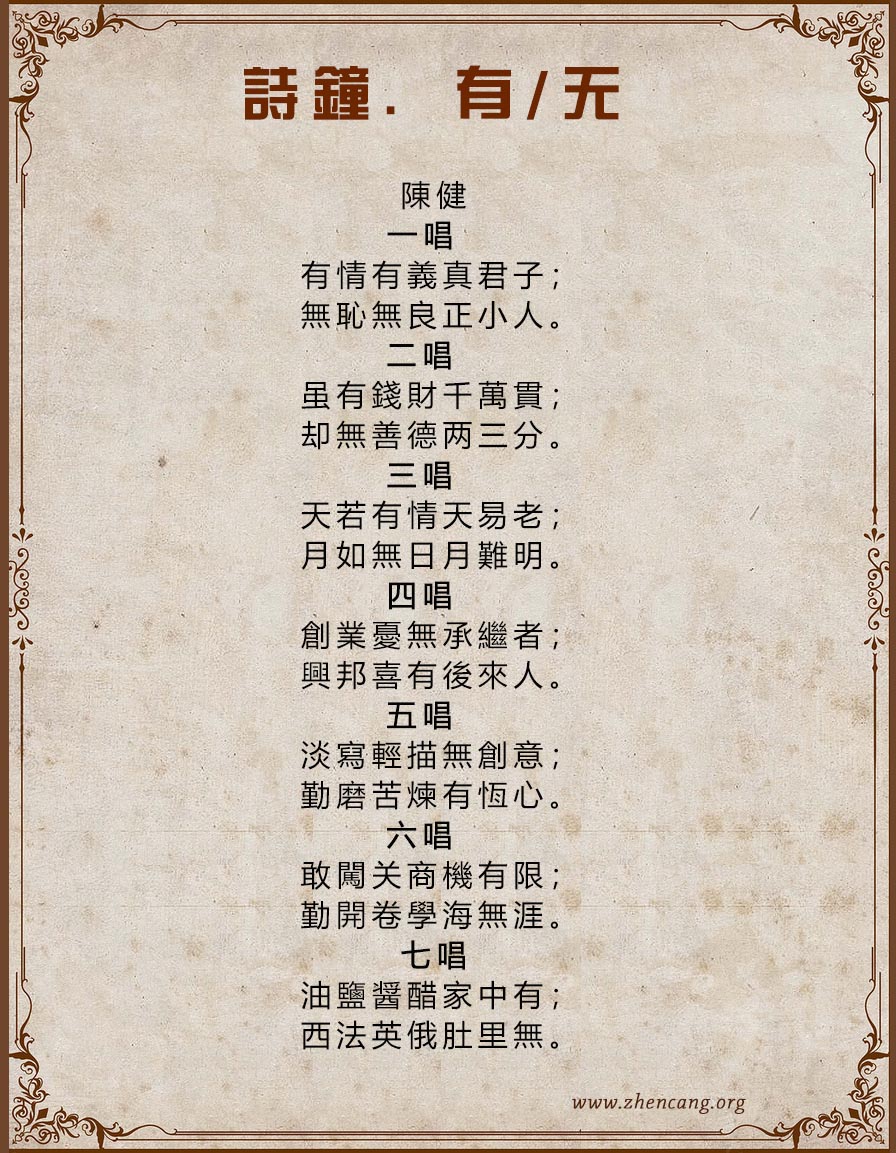 詩鐘. 有/无
陳健
一唱
有情有義真君子；
無恥無良正小人。
二唱
虽有錢財千萬貫；
却無善德两三分。
三唱
天若有情天易老；
月如無日月難明。
四唱
創業憂無承繼者；
興邦喜有後來人。
五唱
淡寫輕描無創意；
勤磨苦煉有恆心。
六唱
敢闖关商機有限；
勤開卷學海無涯。
七唱
油鹽醬醋家中有；
西法英俄肚里無。
www.zhencang.org